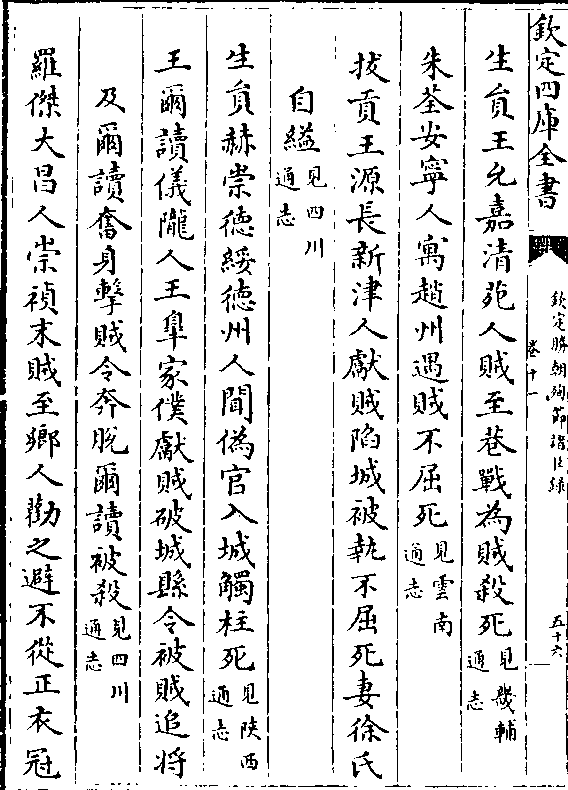 欽定四庫全書
欽定勝朝殉節諸臣錄
卷十一
五十六
生員王允嘉清苑人賊至巷戰為賊殺死見畿輔通志
朱荃安寧人寓趙州遇賊不屈死見雲南通志
拔貢王源長新津人獻賊陷城被執不屈死妻徐氏
自縊見四川通志
生員赫崇德綏德州人聞偽官入城觸柱死見陜西通志
王爾讀儀隴人王臯家僕獻賊破城縣令被賊追將
及爾讀奮身擊賊令奔脫爾讀被殺見四川通志
羅傑大昌人崇禎末賊至鄉人勸之避不從正衣冠